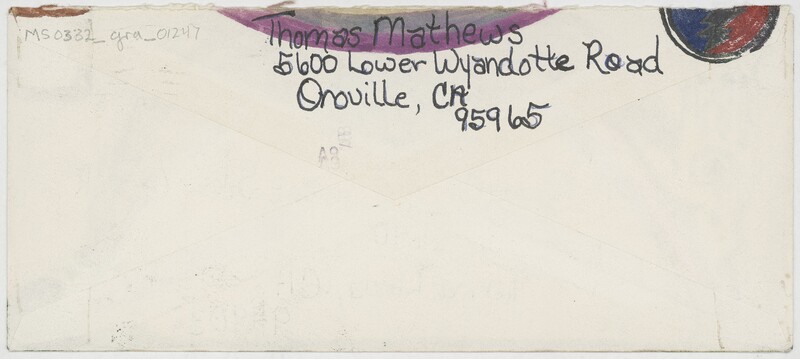 MS0332_gra_01247
Thomas Mathews
5600 Lower Wyandotte Road
Oroville, CA
95965